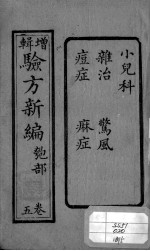 小兒科
雜治 驚風
痘症 麻症
增輯
驗方新編 匏部
卷五